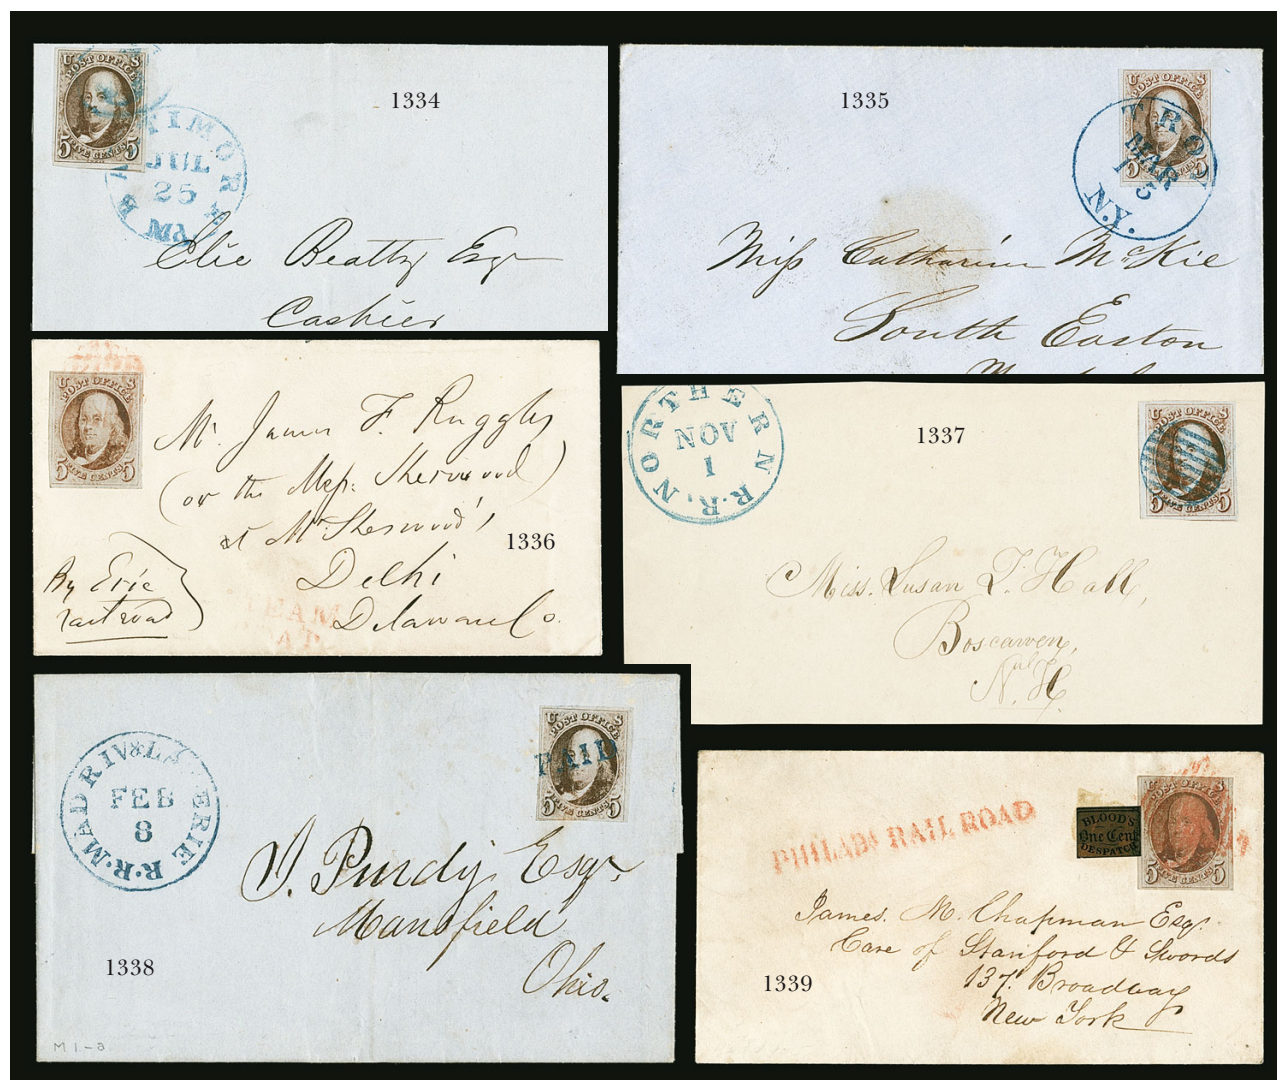 U S
POST OFFICE
5 FIVE CENTS 5
BALTIMORE
JUL
25
Md.
1334
Elie Beatty Esqr
Cashier
1335
U S
POST OFFICE
5 5
TROY
MAR
15
N.Y.
Miss Catharine McKie
South Easton
U S
POST OFFICE
5 FIVE CENTS 5
Mr. James F. Ruggles
(or the Mess. Sherwood)
at Mr. Sherwood's
1336
Delhi
Delaware Co.
By Erie
railroad
STEAM
BOAT
NORTHERN R.R.
NOV
1
1337
U S
POST OFFICE
5 FIVE CENTS 5
Miss. Susan T. Hall,
Boscawen,
N.H.
MAD RIV & L. ERIE R.R.
FEB
8
U S
POST OFFICE
PAID
5 FIVE CENTS 5
Purdy, Esqr.
Mansfield
Ohio.
1338
M1-8
PHILADA RAIL ROAD
BLOOD'S
One Cent
DESPATCH
U S
POST OFFICE
5 FIVE CENTS 5
James. M. Chapman Esq.
Care of Stanford & Swords
1339
137 Broadway
New York